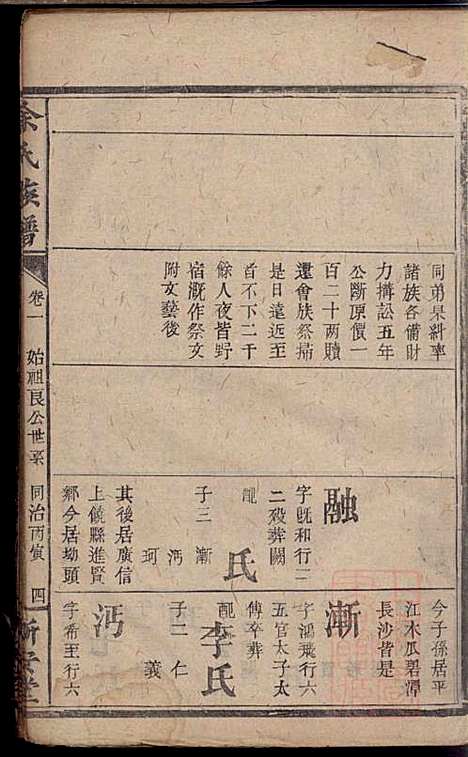 余氏族譜
卷一
始祖良公世系
同治丙寅
四
新安堂
同弟杲糾率
諸族各備財
力搆訟五年
公斷原價一
百二十兩贖
還會族祭掃
是日遠近至
者不下二千
餘人夜皆野
宿溉作祭文
附文藝後
融
字旣和行二
二歿葬闕
配 氏
子三 漸
沔
珂
其後居廣信
上饒縣進賢
鄉今居坳頭
今子孫居平
江木瓜碧潭
長沙皆是
漸
字鴻飛行六
五官太子太
傅卒葬
配李氏
子二 仁
義
沔
字希至行六